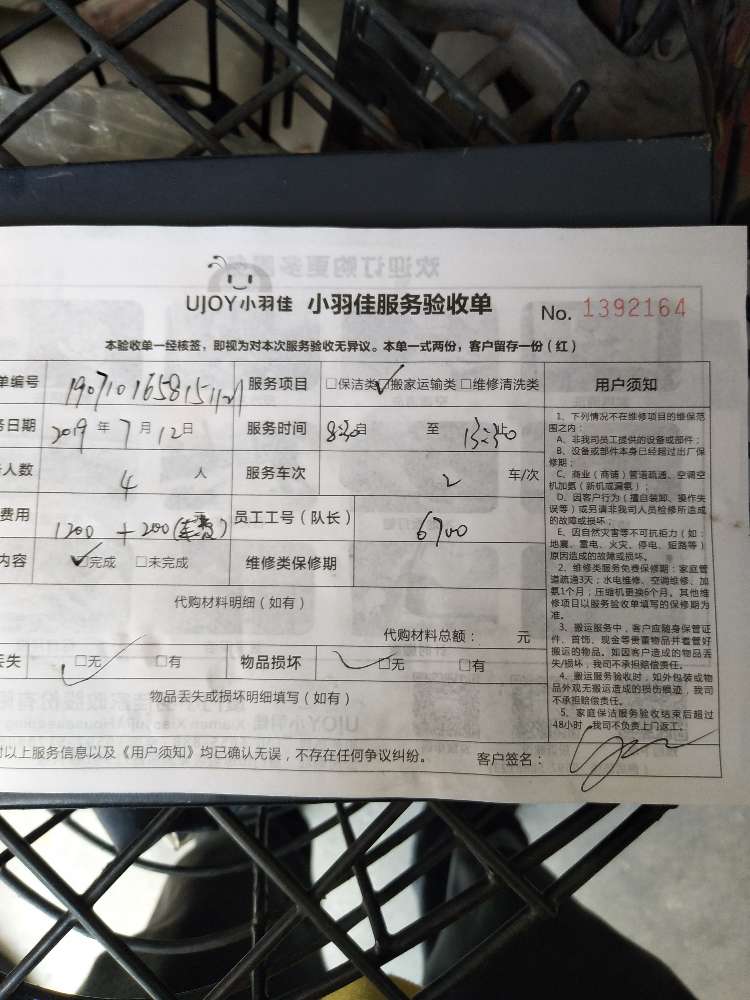 UJOY小羽佳 小羽佳服务验收单 No. 1392164
本验收单一经核签，即视为对本次服务验收无异议。本单一式两份，客户留存一份（红）
单编号 服务项目 □保洁类 □搬家运输类 □维修清洗类 用户须知
务日期 2019 年 7 月 12 日 服务时间 8:30 自 至
人数 4 人 服务车次 2 车/次
费用 1200 + 200 员工工号（队长） 6700
内容 □完成 □未完成 维修类保修期
代购材料明细（如有）
代购材料总额： 元
丢失 □无 □有 物品损坏 □无 □有
物品丢失或损坏明细填写（如有）
对以上服务信息以及《用户须知》均已确认无误，不存在任何争议纠纷。 客户签名：
1、下列情况不在维修项目的维保范
围之内：
A、非我司员工提供的设备或部件；
B、设备或部件本身已经超过出厂保
修期；
C、商业（商铺）管道疏通、空调空
机加氨（新机或漏氨）；
D、因客户行为（擅自装卸、操作失
误等）或另请非我司人员检修所造成
的故障或损坏；
E、因自然灾害等不可抗拒力（如：
地震、雷电、火灾、停电、短路等）
原因造成的故障或损坏。
2、维修类服务免费保修期：家庭管
道疏通3天；水电维修、空调维修、加
氨1个月；压缩机更换6个月。其他维
修项目以服务验收单填写的保修期为
准。
3、搬运服务中，客户应随身保管证
件、首饰、现金等贵重物品并看管好
搬运的物品。如因客户造成的物品丢
失/损坏，我司不承担赔偿责任。
4、搬运服务验收时，如外包装或物
品外观无搬运造成的损伤痕迹，我司
不承担赔偿责任。
5、家庭保洁服务验收结束后超过
48小时，我司不负责上门返工。